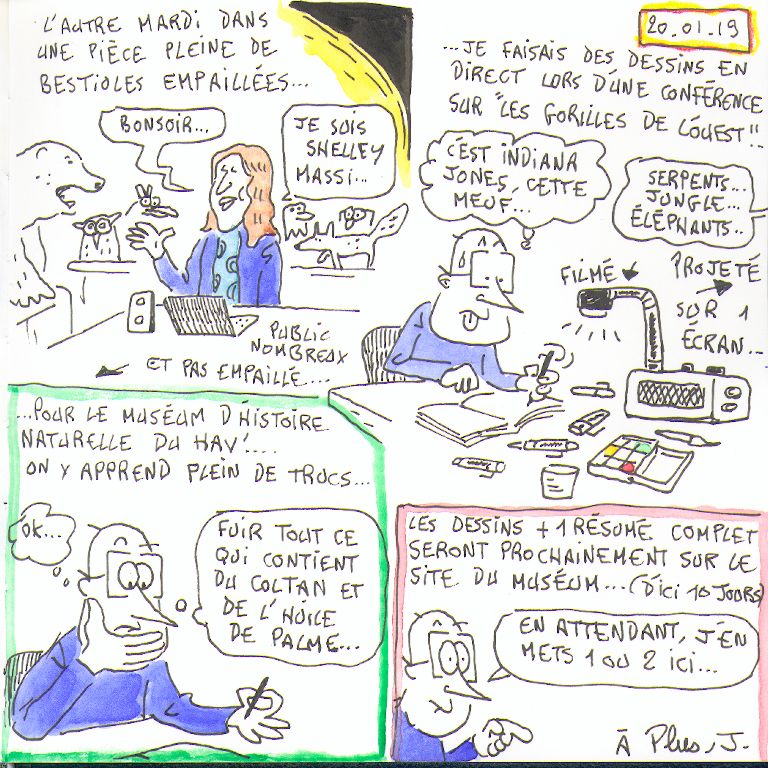 L'AUTRE MARDI DANS
UNE PIÈCE PLEINE DE
BESTIOLES EMPAILLÉES...
BONSOIR...
JE SUIS
SHELLEY
MASSI...
PUBLIC
NOMBREUX
ET PAS EMPAILLÉ...
20.01.19
...JE FAISAIS DES DESSINS EN
DIRECT LORS D'UNE CONFÉRENCE
SUR "LES GORILLES DE L'OUEST"...
C'EST INDIANA
JONES, CETTE
MEUF...
SERPENTS...
JUNGLE...
ÉLÉPHANTS..
FILMÉ
PROJETÉ
SUR 1
ÉCRAN...
...POUR LE MUSÉUM D'HISTOIRE
NATURELLE DU HAV'....
ON Y APPREND PLEIN DE TRUCS...
OK...
FUIR TOUT CE
QUI CONTIENT
DU COLTAN ET
DE L'HUILE
DE PALME...
LES DESSINS + 1 RÉSUMÉ COMPLET
SERONT PROCHAINEMENT SUR LE
SITE DU MUSÉUM...(D'ICI 10 JOURS)
EN ATTENDANT, J'EN
METS 1 OU 2 ICI...
À Plus, J.